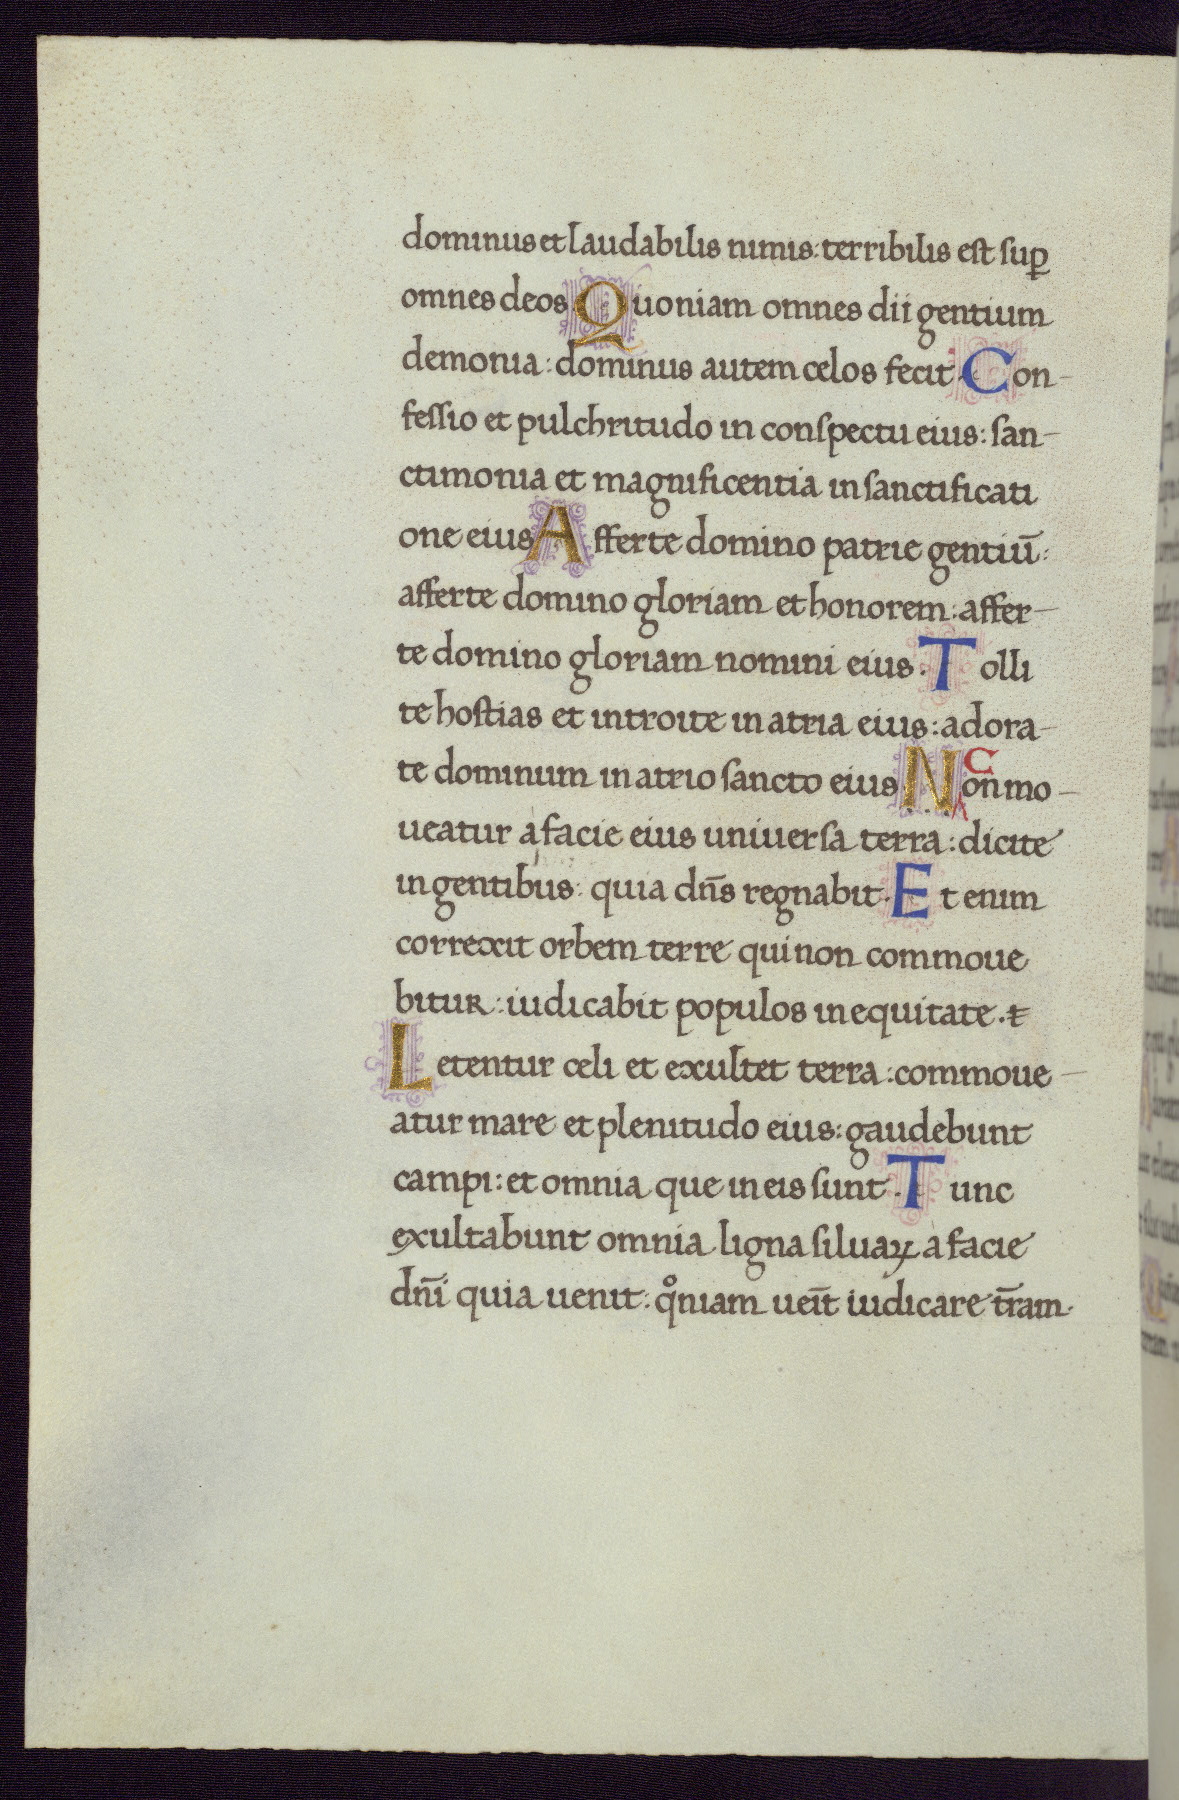 dominus et laudabilis nimis: terribilis est suꝑ
omnes deos. Quoniam omnes dii gentium
demonia: dominus autem celos fecit. Con-
fessio et pulchritudo in conspectu eius: san-
ctimonia et magnificentia in sanctificati
one eius Afferte domino patrie gentiū:
afferte domino gloriam et honorem: affer-
te domino gloriam nomini eius. Tolli
te hostias et introite in atria eius: adora-
te dominum in atrio sancto eius Non mo-
C
ueatur a facie eius uniuersa terra: dicite
in gentibus: quia dn̄s regnabit. Et enim
correxit orbem terre qui non commoue
bitur: iudicabit populos in equitate. t
Letentur celi et exultet terra: commoue-
atur mare et plenitudo eius: gaudebunt
campi: et omnia que in eis sunt. Tunc
exultabunt omnia ligna siluaꝝ a facie
dn̄i quia uenit: qͦniam ueīt iudicare tr̄am.